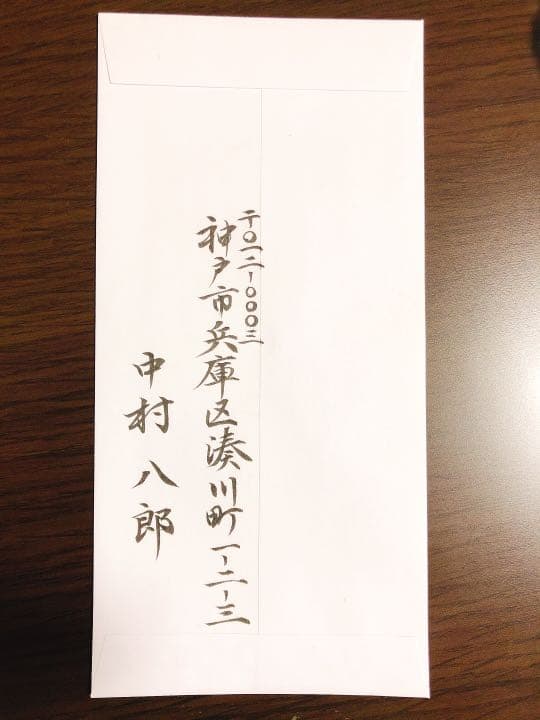 〒〇一二-〇〇〇三
神戸市兵庫区湊川町一-二-三
中村八郎